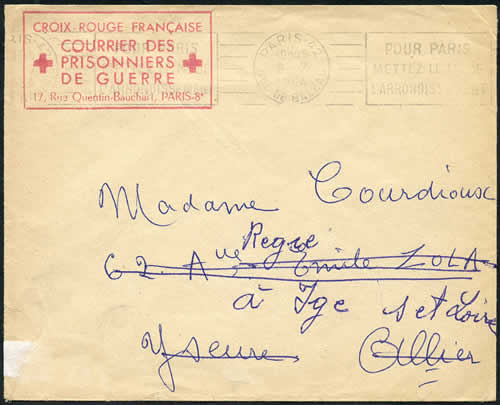 CROIX ROUGE FRANÇAISE
COURRIER DES
PRISONNIERS
DE GUERRE
17, Rue Quentin-Bauchart, PARIS-8e
PARIS
POUR PARIS
METTEZ LE
L'ARRONDIS
Madame Courdioux
Regie
62 Aue Emile ZOLA
à Ige S et Loire
Yseure Allier